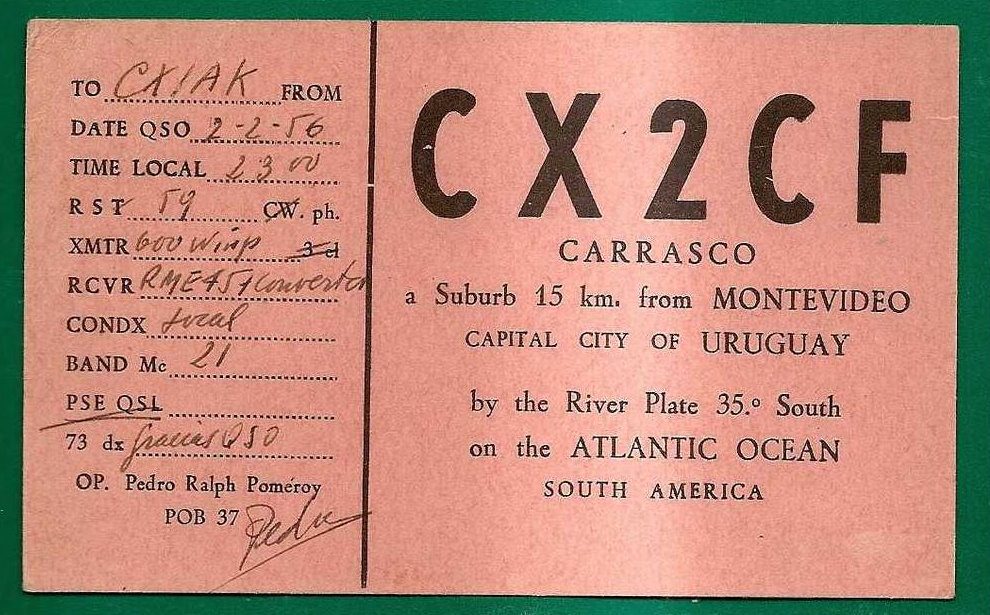 TO CX1AK FROM
DATE QSO 2-2-56
TIME LOCAL 23 00
RST 59 CW. ph.
XMTR 600 W inp
RCVR RME45 + converter
CONDX local
BAND Mc 21
PSE QSL
73 dx gracias QSO
OP. Pedro Ralph Pomeroy
POB 37 Pedro
CX2CF
CARRASCO
a Suburb 15 km. from MONTEVIDEO
CAPITAL CITY OF URUGUAY
by the River Plate 35.º South
on the ATLANTIC OCEAN
SOUTH AMERICA